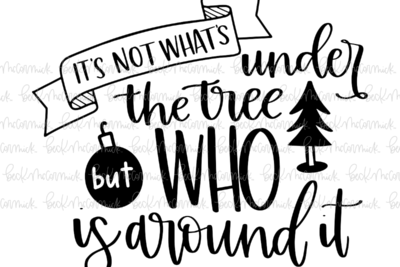 IT'S NOT WHAT'S
under
the tree
but WHO
is around it